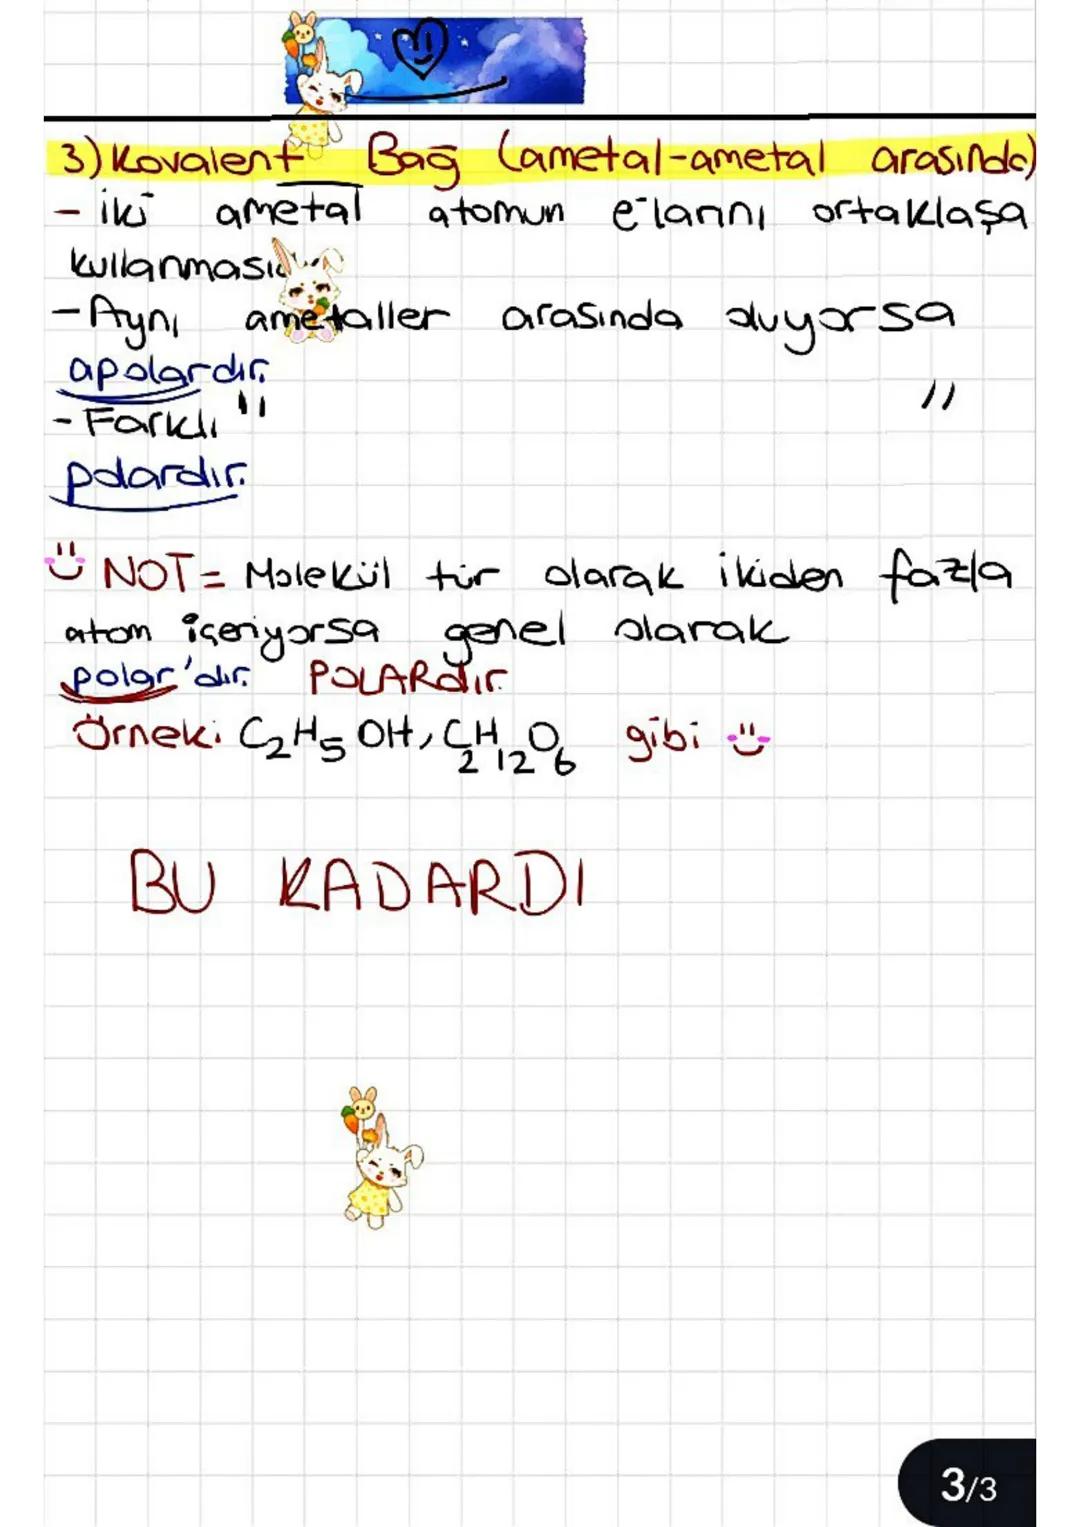 3) Kovalent Bağ (ametal-ametal arasında)
- iki ametal atomun e⁻larını ortaklaşa
kullanmasıdır.
- Aynı ametaller arasında oluyorsa
apolardır.
- Farklı " "
polardır.
NOT= Molekül tür olarak ikiden fazla
atom içeriyorsa genel olarak
polar'dır. POLARdır.
Örnek: C₂H₅OH, C₂H₁₂O₆ gibi
BU KADARDI
3/3